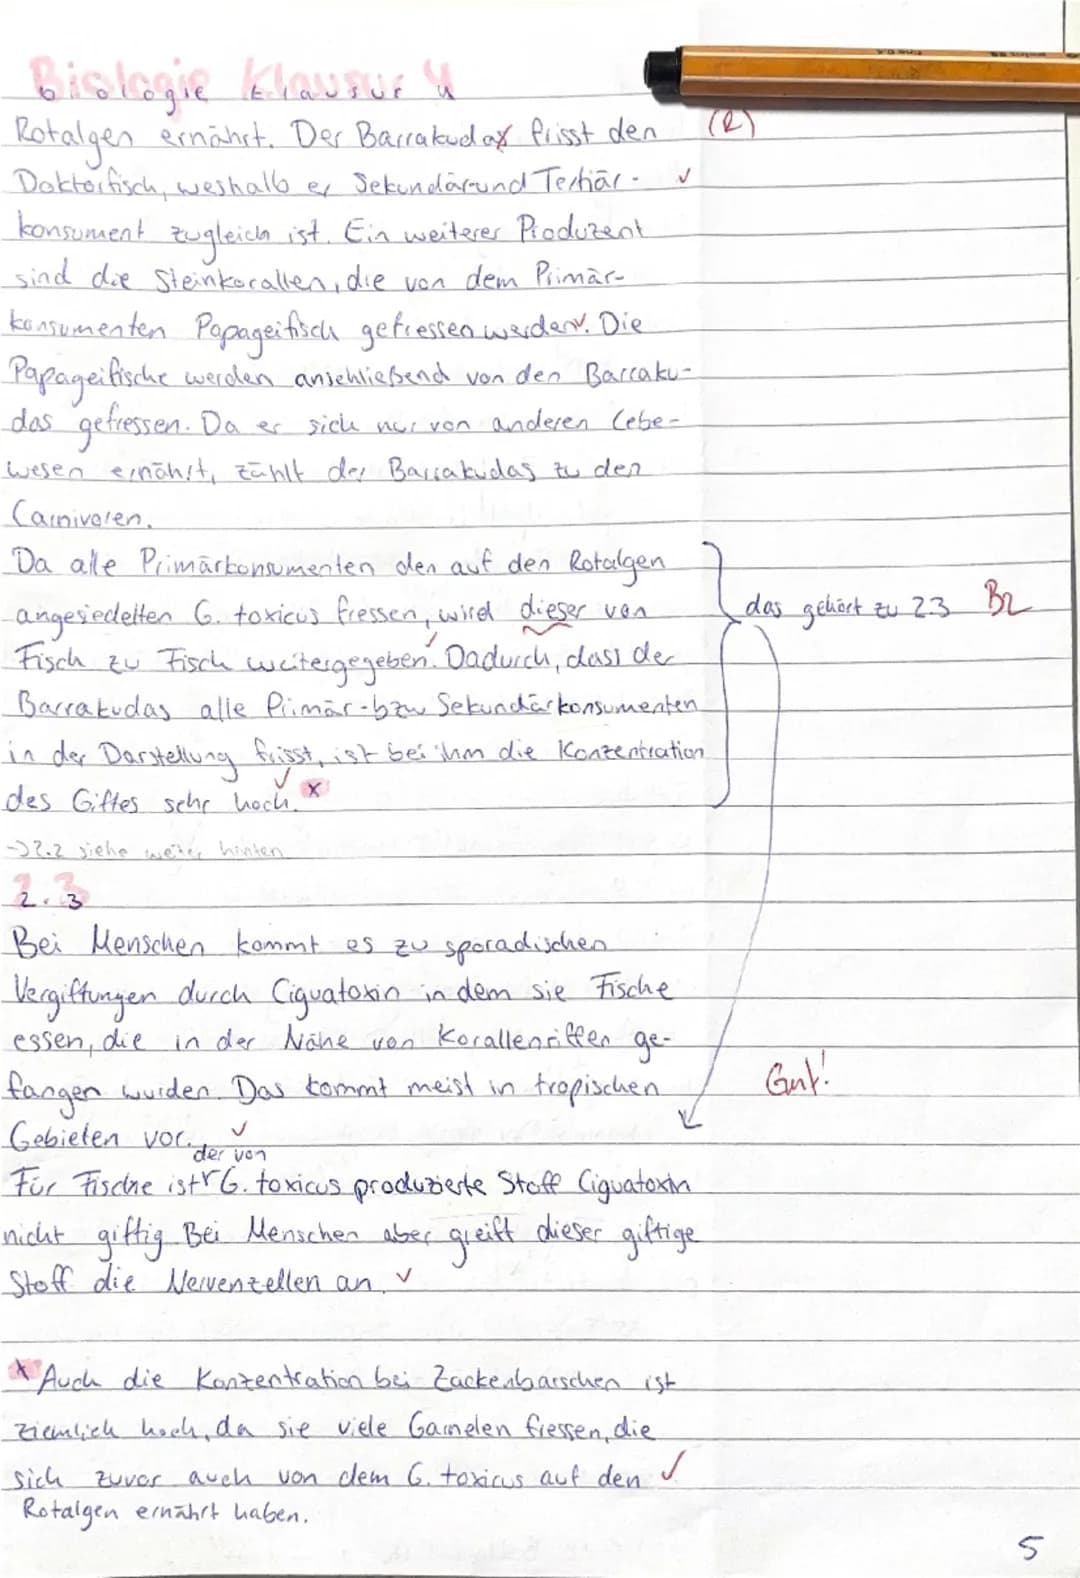 Biologie Klausur 4
Rotalgen ernährt. Der Barrakudas frisst den (R)
Doktorfisch, weshalb er Sekundär und Tertiär- ✓
konsument zugleich ist. Ein weiterer Produzent
sind die Steinkorallen, die von dem Primär-
konsumenten Papageifisch gefressen werden ✓. Die
Papageifische werden anschließend von den Barraku-
das gefressen. Da er sich nur von anderen Lebe-
wesen ernährt, zählt der Barrakudas zu den
Carnivoren.
Da alle Primärkonsumenten den auf den Rotalgen
angesiedelten G. toxicus fressen, wird dieser von das gehört zu 2.3 Bz
Fisch zu Fisch weitergegeben ✓. Dadurch, dass der
Barrakudas alle Primär- bzw Sekundärkonsumenten
in der Darstellung frisst, ist bei ihm die Konzentration
des Giftes sehr hoch. ✓ x
→ 2.2 siehe weiter hinten
2.3
Bei Menschen kommt es zu sporadischen
Vergiftungen durch Ciguatoxin in dem sie Fische
essen, die in der Nähe von Korallenriffen ge-
fangen wurden. Das kommt meist in tropischen Gut!
Gebieten vor. ✓
der von
Für Fische ist G. toxicus produzierte Stoff Ciguatoxin
nicht giftig. Bei Menschen aber greift dieser giftige
Stoff die Nervenzellen an. ✓
x Auch die Konzentration bei Zackenbarschen ist
ziemlich hoch, da sie viele Garnelen fressen, die
sich zuvor auch von dem G. toxicus auf den ✓
Rotalgen ernährt haben.
5